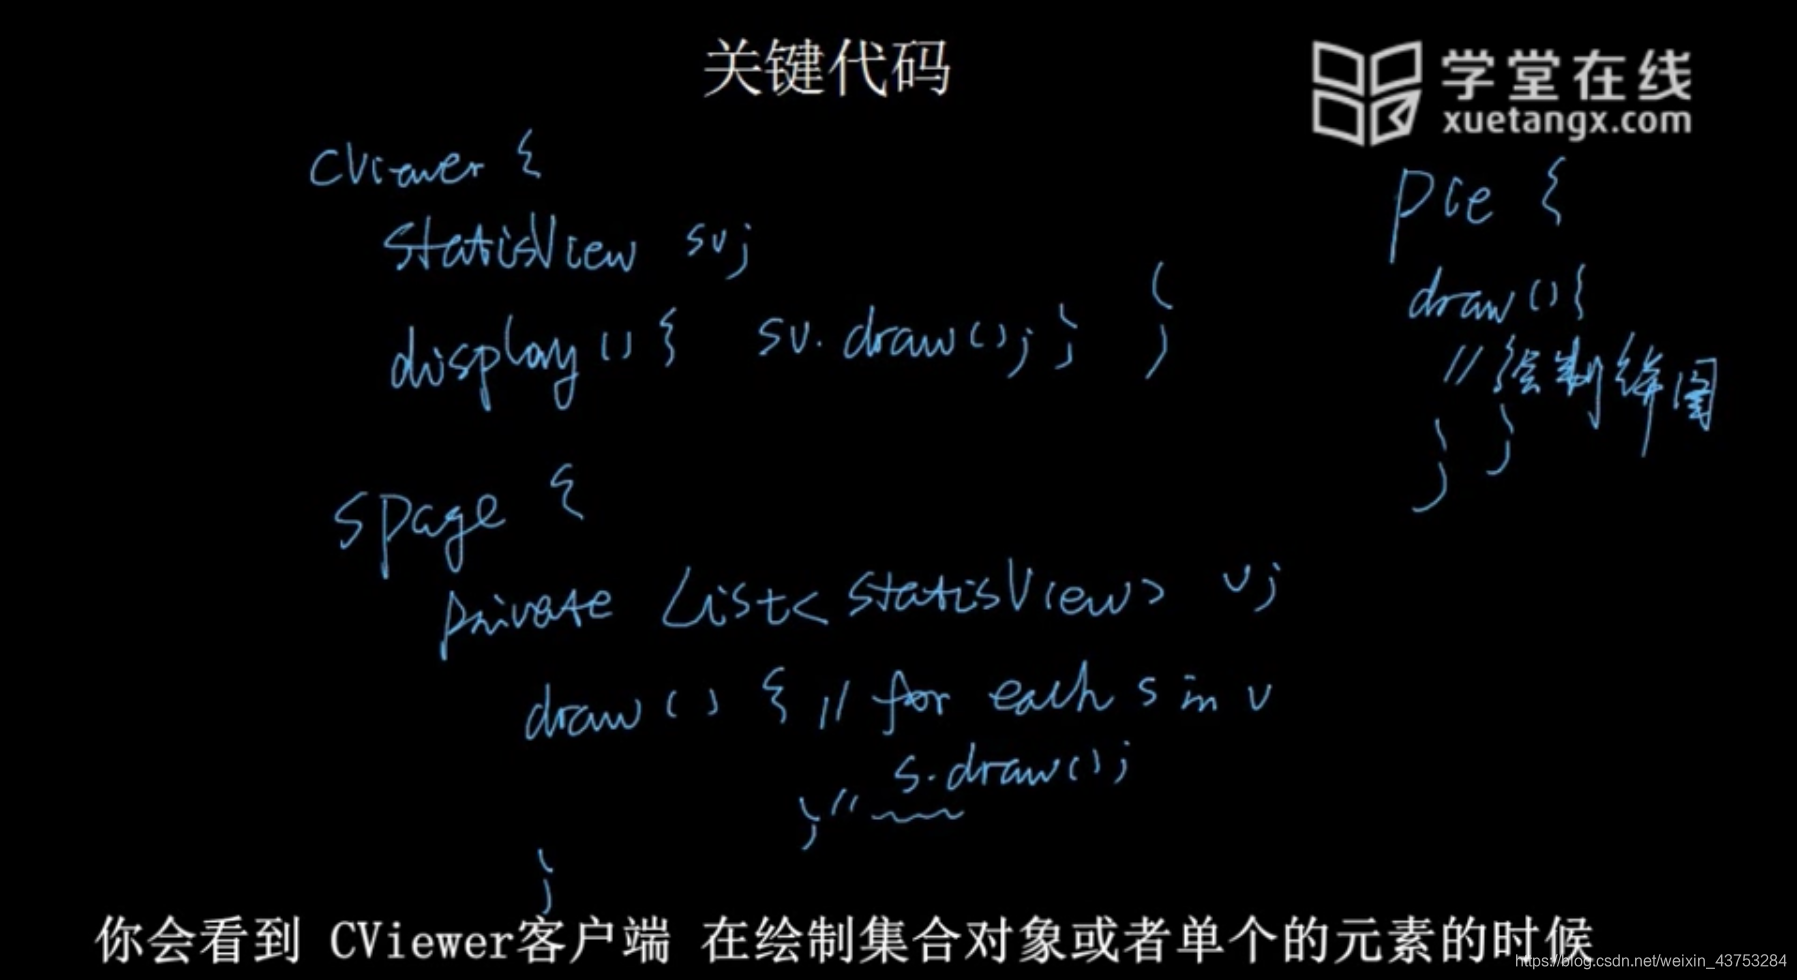 关键代码
学堂在线
xuetangx.com
CViewer {
StatisView sv;
display() { sv.draw(); } }
Spage {
private List<StatisView> v;
draw() { // for each s in v
s.draw();
} //
}
Pie {
draw(){
//绘制饼图
} }
你会看到 CViewer客户端 在绘制集合对象或者单个的元素的时候
https://blog.csdn.net/weixin_43753284